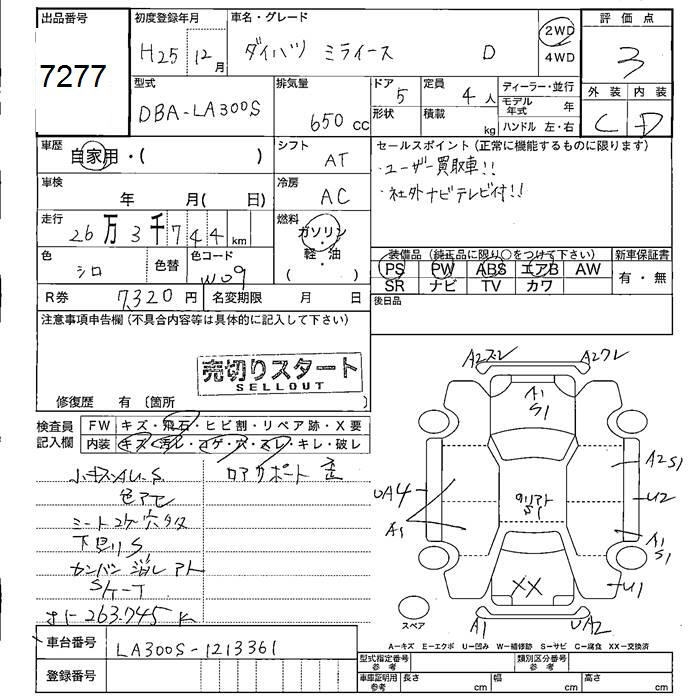 出品番号
7277
初度登録年月
H25 12月
車名・グレード
ダイハツ ミライース D
2WD
4WD
評価点
3
外装 内装
C D
型式
DBA-LA300S
排気量
650 cc
ドア
5
形状
定員
4人
積載
kg
ディーラー・並行
モデル年式 年
ハンドル 左・右
車歴
自家用・( )
シフト
AT
セールスポイント(正常に機能するものに限ります)
・ユーザー買取車!!
・社外ナビテレビ付!!
車検
年 月( 日)
冷房
AC
走行
26万3千744km
燃料
ガソリン
軽・油
( )
色
シロ
色替
色コード
W09
装備品(純正品に限り○をつけて下さい)
新車保証書
PS PW ABS エアB AW
SR ナビ TV カワ
有・無
R券
7,320円
名変期限 月 日
後日品
注意事項申告欄(不具合内容等は具体的に記入して下さい)
売切りスタート
SELLOUT
修復歴 有〔箇所 〕
検査員記入欄
FW キズ・飛石・ヒビ割・リペア跡・X要
内装 キズ・汚レ・コゲ・穴・スレ・キレ・破レ
小キズAU.S.
色アセ
シートコゲ穴タタ
下回りS
カンバン消しアト
263.745K
ロアサポート 歪
A2ズレ
A2ワレ
A1
S1
A2S1
UA4
U2
A1
クリアト
S1
A1
S1
XX
U1
A1
UA2
スペア
A-キズ E-エクボ U-凹み W-補修跡 S-サビ C-腐食 XX-交換済
車台番号
LA300S-1213361
登録番号
型式指定番号
参考
類別区分番号
参考
車庫証明用
参考
長さ cm
幅 cm
高さ cm